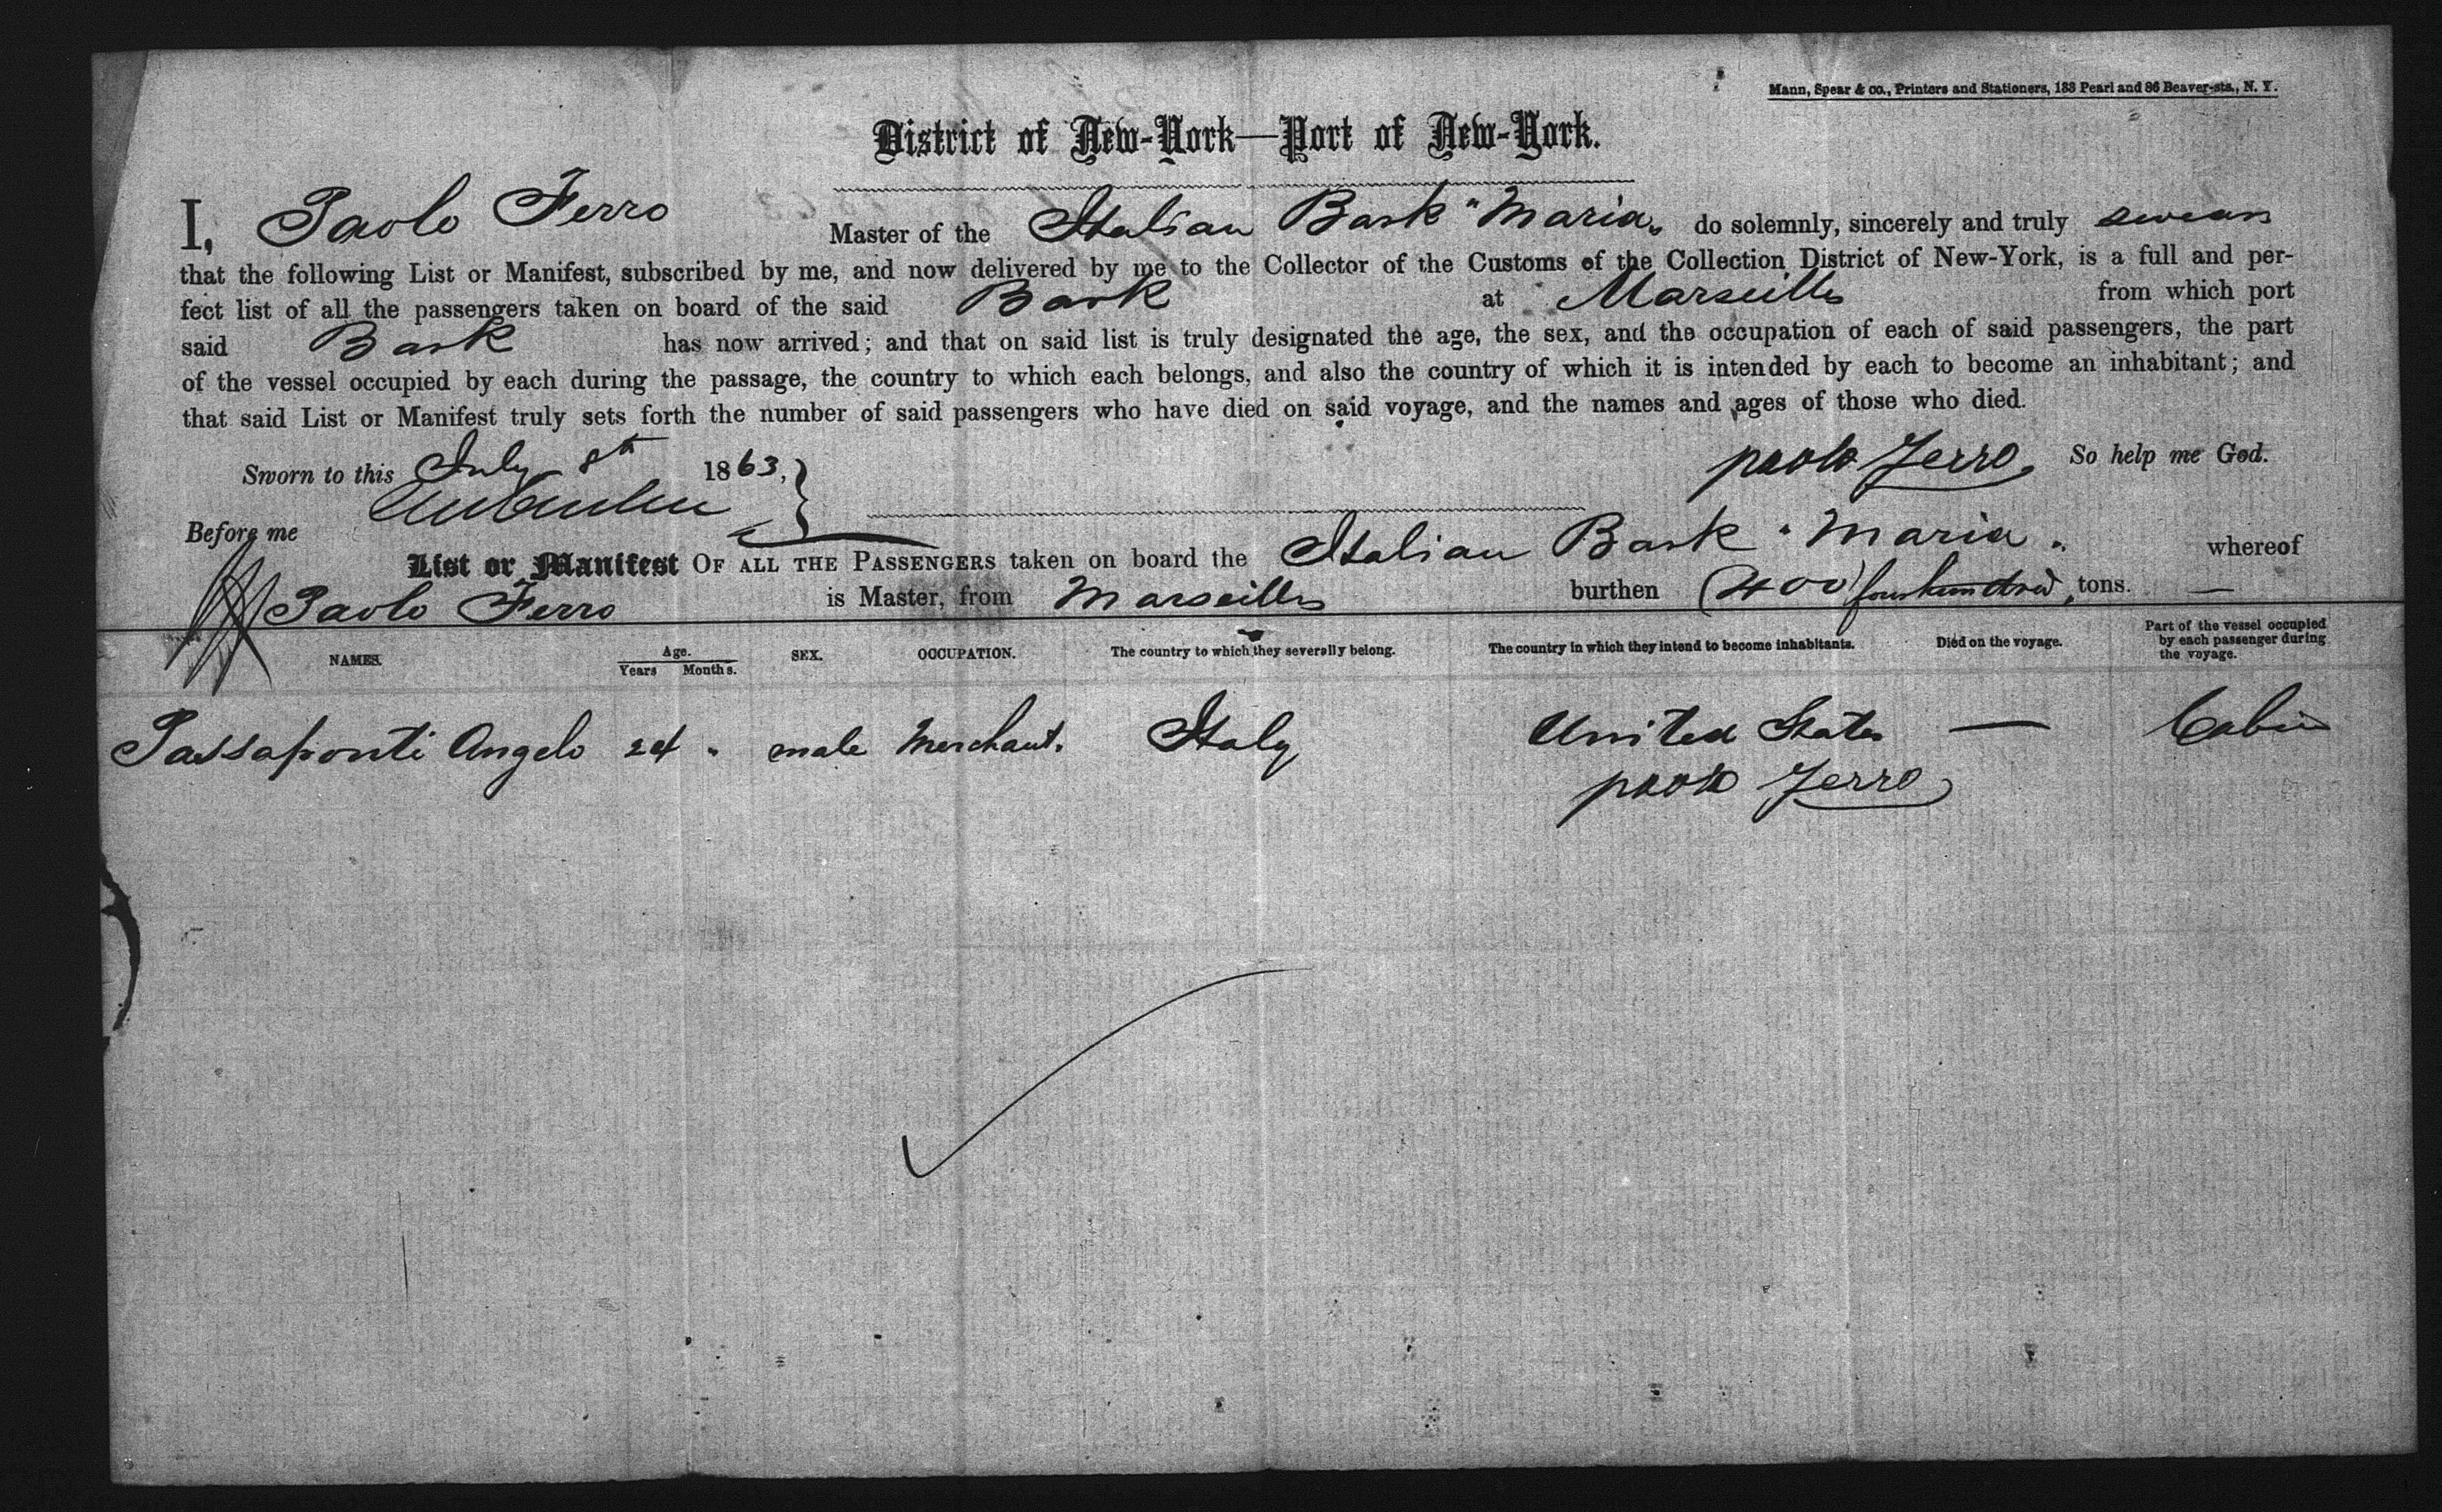 Mann, Spear & co., Printers and Stationers, 133 Pearl and 86 Beaver-sts., N. Y.
District of New-York—Port of New-York.
I, Paolo Ferro Master of the Italian Bark "Maria" do solemnly, sincerely and truly swear
that the following List or Manifest, subscribed by me, and now delivered by me to the Collector of the Customs of the Collection District of New-York, is a full and per-
fect list of all the passengers taken on board of the said Bark at Marseilles from which port
said Bark has now arrived; and that on said list is truly designated the age, the sex, and the occupation of each of said passengers, the part
of the vessel occupied by each during the passage, the country to which each belongs, and also the country of which it is intended by each to become an inhabitant; and
that said List or Manifest truly sets forth the number of said passengers who have died on said voyage, and the names and ages of those who died.
Sworn to this July 8th 1863, paolo Ferro So help me God.
Before me
List or Manifest OF ALL THE PASSENGERS taken on board the Italian Bark "Maria" whereof
Paolo Ferro is Master, from Marseilles burthen (400) four hundred, tons. —
NAMES. Age. Years Months. SEX. OCCUPATION. The country to which they severally belong. The country in which they intend to become inhabitants. Died on the voyage. Part of the vessel occupied by each passenger during the voyage.
Passaponti Angelo 24 " male Merchant. Italy United States — Cabin
paolo Ferro